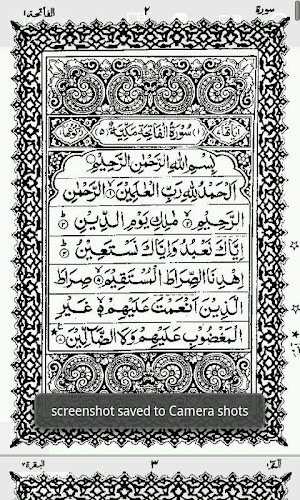 سورة ٢ الفاتحة ١
سُوْرَةُ الْفَاتِحَةِ مَكِّيَّةٌ
بِسْمِ اللهِ الرَّحْمٰنِ الرَّحِيْمِ
اَلْحَمْدُ لِلّٰهِ رَبِّ الْعٰلَمِيْنَ ۙ١ الرَّحْمٰنِ
الرَّحِيْمِ ۙ٢ مٰلِكِ يَوْمِ الدِّيْنِ ؕ٣
اِيَّاكَ نَعْبُدُ وَاِيَّاكَ نَسْتَعِيْنُ ؕ٤
اِهْدِنَا الصِّرَاطَ الْمُسْتَقِيْمَ ۙ٥ صِرَاطَ
الَّذِيْنَ اَنْعَمْتَ عَلَيْهِمْ ۙ٦ غَيْرِ
الْمَغْضُوْبِ عَلَيْهِمْ وَلَا الضَّآلِّيْنَ
screenshot saved to Camera shots
البقرة ٢ ٣